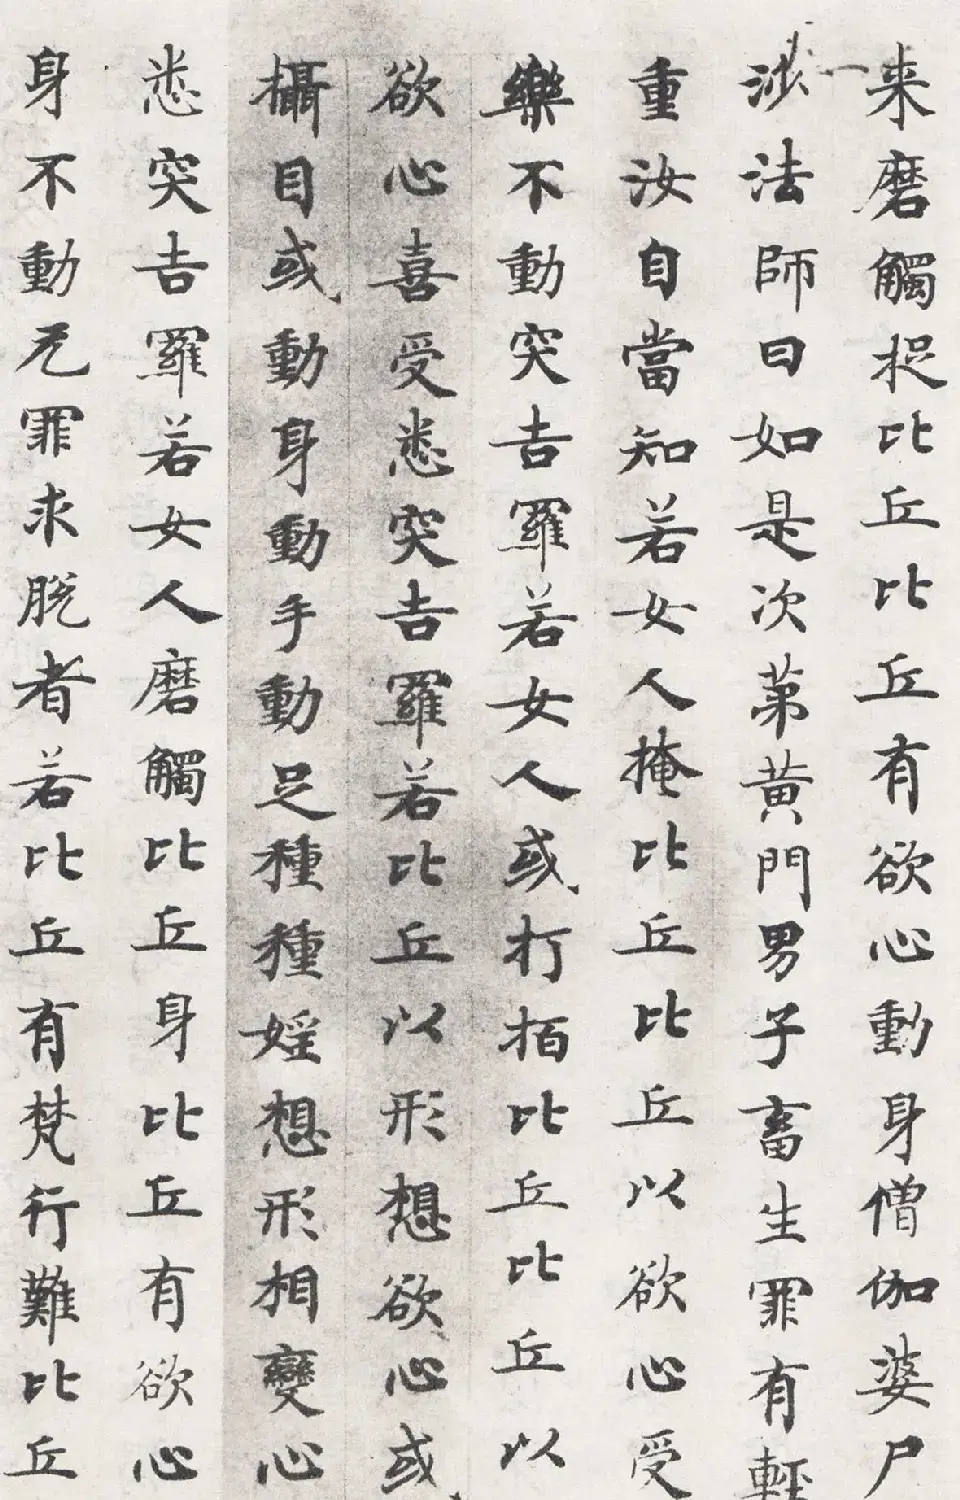 来磨觸捉比丘比丘有欲心動身僧伽婆尸
沙法師曰如是次第黄門男子畜生罪有輕
重汝自當知若女人掩比丘比丘以欲心受
樂不動突吉羅若女人或打拍比丘比丘以
欲心喜受悉突吉羅若比丘以形想欲心或
攝目或動身動手動足種種婬想形相變心
悉突吉羅若女人磨觸比丘身比丘有欲心
身不動无罪求脱者若比丘有梵行難比丘